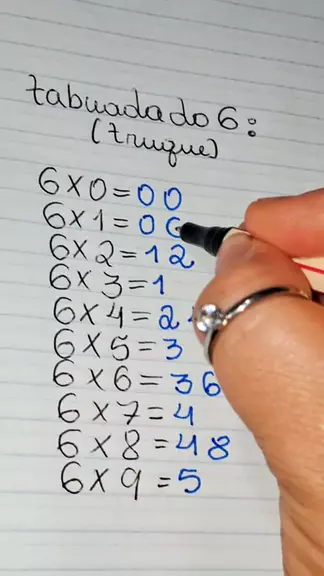 tabuada do 6:
(truque)
6×0=00
6×1=06
6×2=12
6×3=1
6×4=2
6×5=3
6×6=36
6×7=4
6×8=48
6×9=5